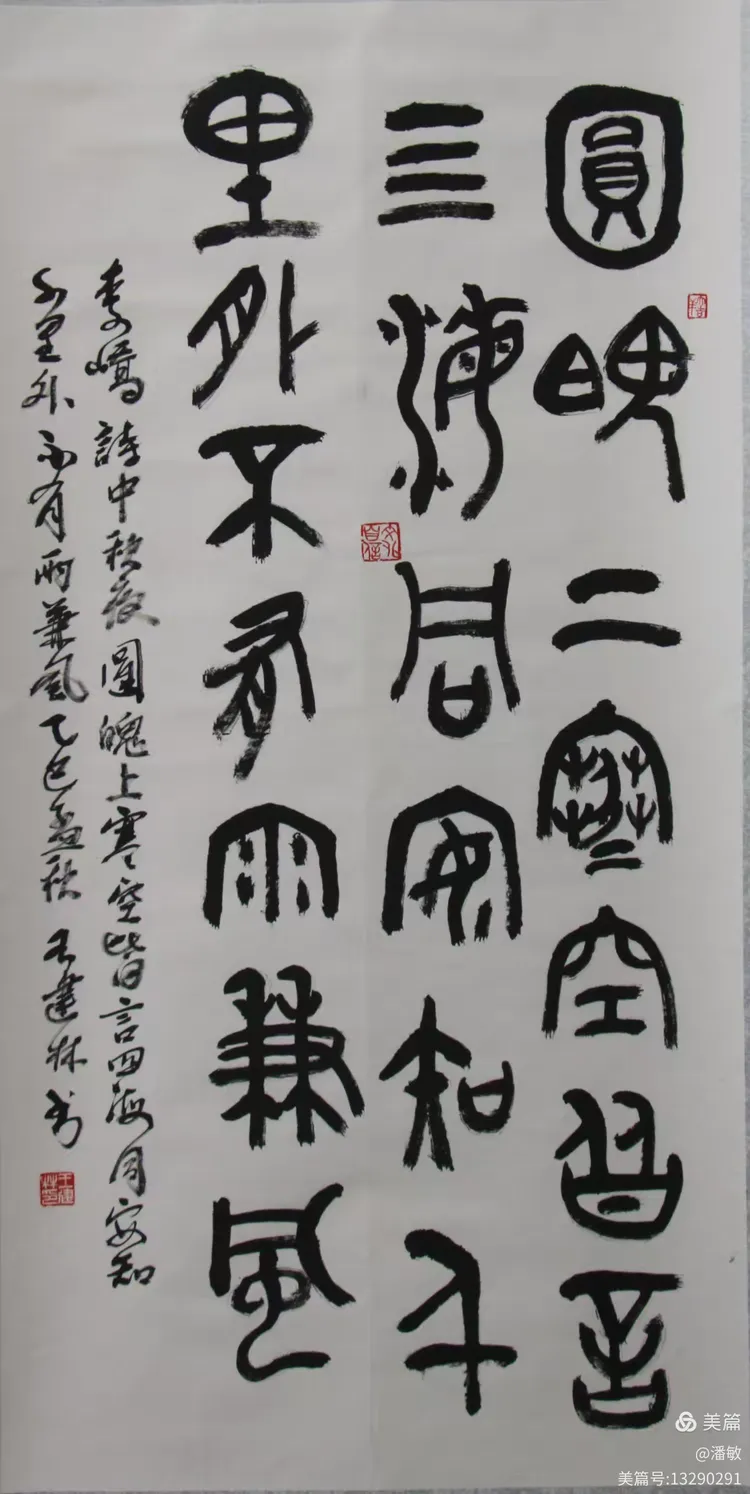 圓魄上寒空皆言
四海同安知千
里外不有雨兼風
李嶠詩中秋夜圓魄上寒空皆言四海同安知
千里外不有雨兼風乙巳孟秋王建林书
美篇
@潘敏
美篇号:13290291